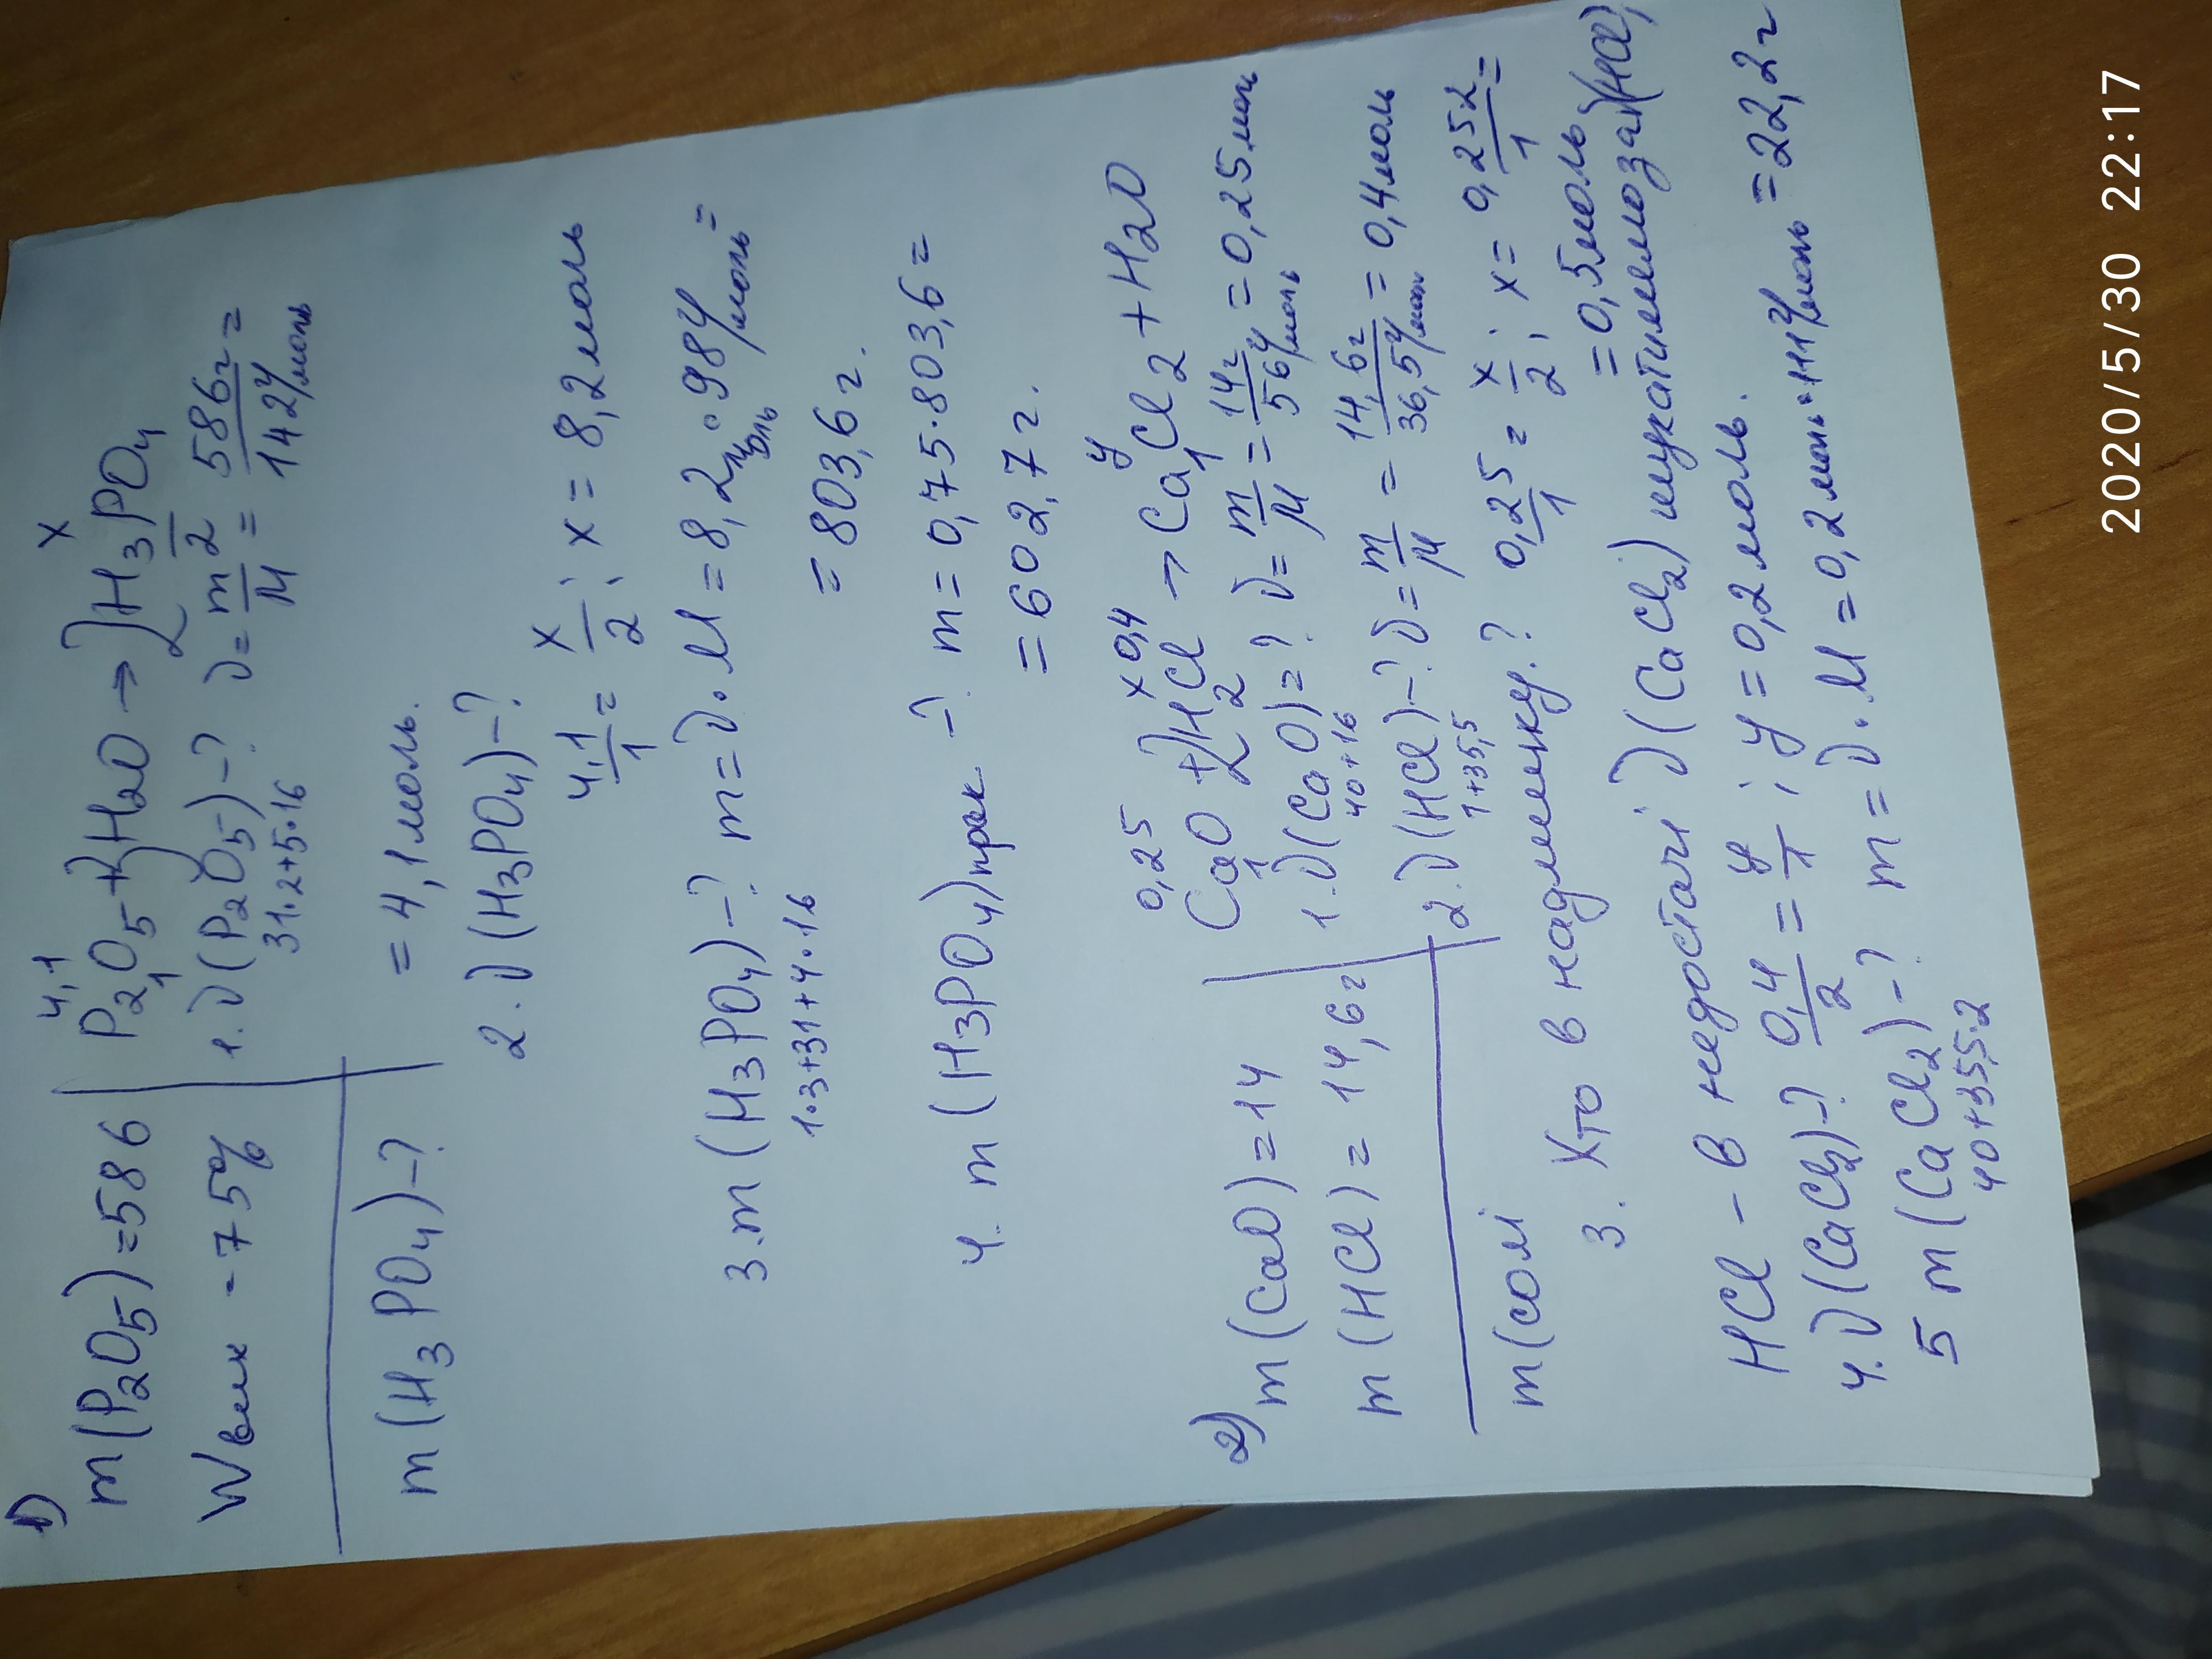 1)
m(P2O5)=586
Wвих -75%
m(H3PO4)-?
4,1 x
P2O5+3H2O→2H3PO4
1 2
1. ν(P2O5)-? ν=m/M=586г/142г/моль=
31·2+5·16
=4,1моль.
2. ν(H3PO4)-?
4,1/1=x/2; x=8,2моль
3. m(H3PO4)-? m=ν·M=8,2моль·98г/моль=
1·3+31+4·16
=803,6г.
4. m(H3PO4)прак-? m=0,75·803,6=
=602,7г.
2)
m(CaO)=14
m(HCl)=14,6г
m(солі
0,25 x 0,4 y
CaO+2HCl→CaCl2+H2O
1 2 1
1. ν(CaO)=? ν=m/M=14г/56г/моль=0,25моль
40+16
2. ν(HCl)-? ν=m/M=14,6г/36,5г/моль=0,4моль
1+35,5
3. Хто в надлишку? 0,25/1=x/2; x=0,25·2/1=
=0,5моль
HCl - в недостачі ν(CaCl2) шукатимемо за ν(HCl)
4. ν(CaCl2)-? 0,4/2=y/1; y=0,2моль.
5 m(CaCl2)-? m=ν·M=0,2моль·111г/моль=22,2г
40+35,5·2
2020/5/30 22:17